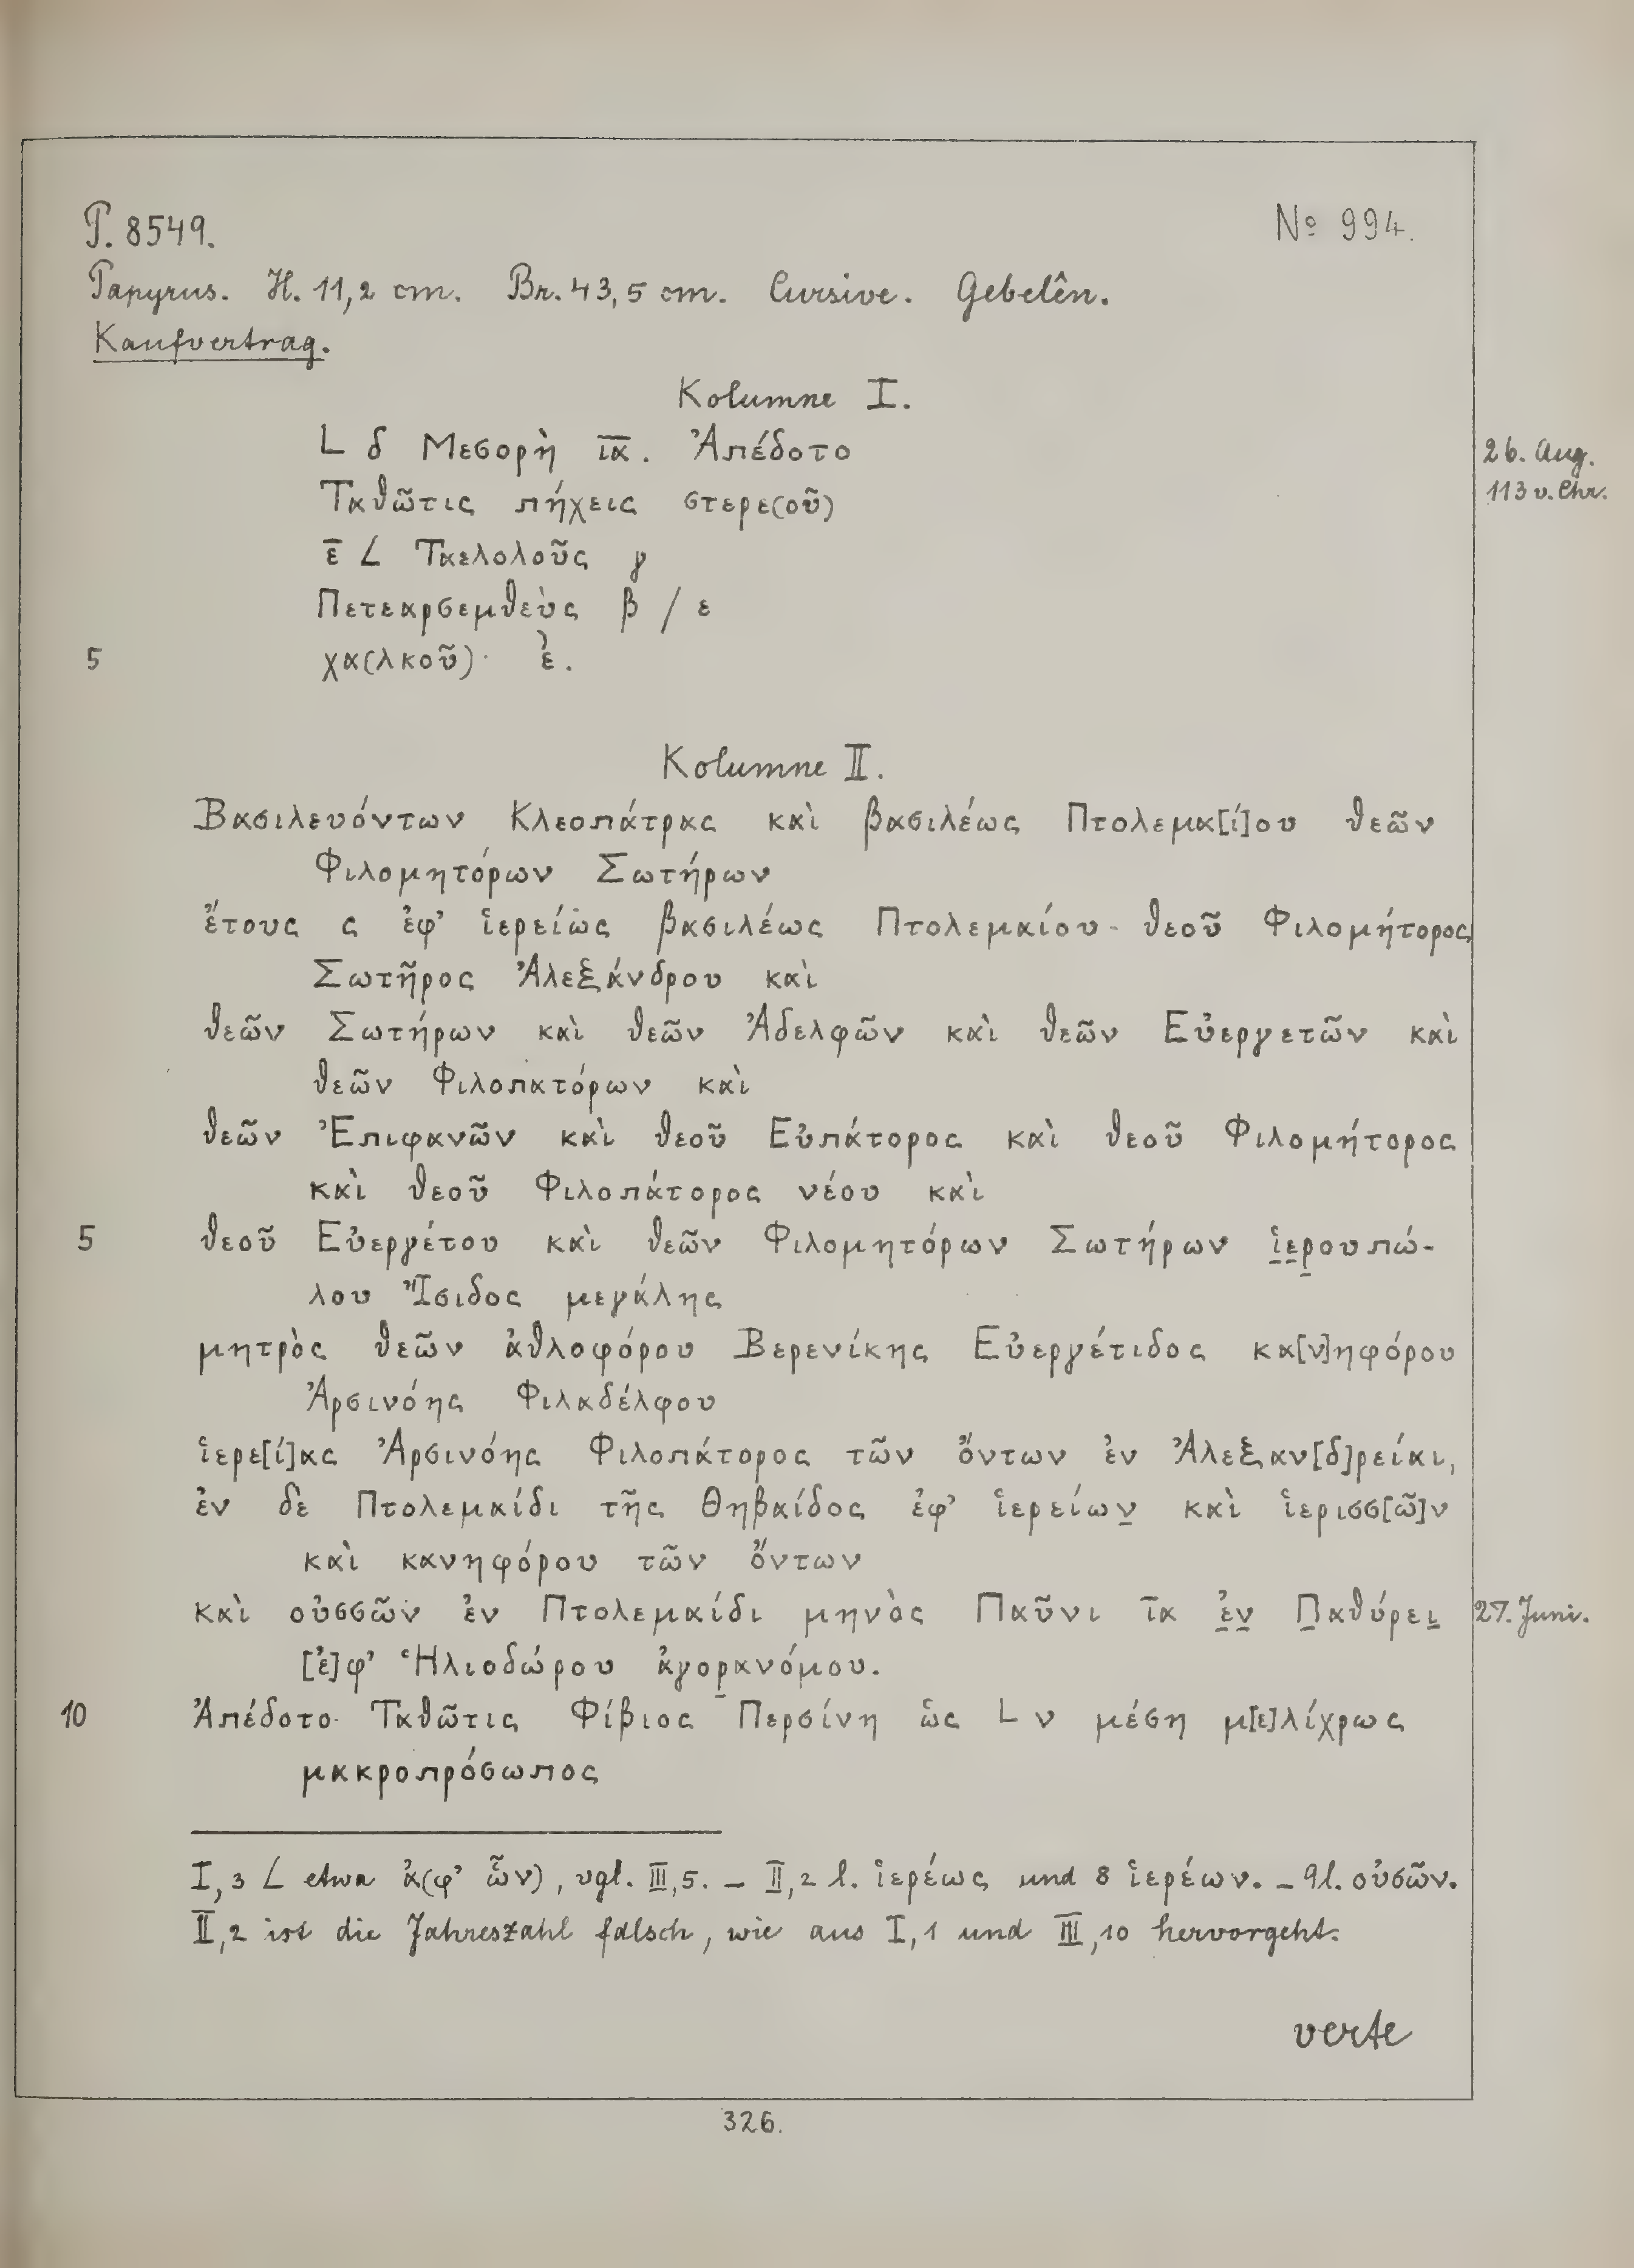 P. 8549.
No 994.
Papyrus. H. 11,2 cm. Br. 43,5 cm. Cursive. Gebelên.
Kaufvertrag.
Kolumne I.
L δ Μεσορὴ ια̅. Ἀπέδοτο
26. Aug.
Ταθῶτις πήχεις στερε(οῦ)
113 v. Chr.
ε̅ L Ταελολοῦς γ
Πετεαρσεμθεὺς β / ε
5 χα(λκοῦ) ἐ.
Kolumne II.
Βασιλευόντων Κλεοπάτρας καὶ βασιλέως Πτολεμα[ί]ου θεῶν
Φιλομητόρων Σωτήρων
ἔτους ς ἐφ' ἱερείως βασιλέως Πτολεμαίου θεοῦ Φιλομήτορος
Σωτῆρος Ἀλεξάνδρου καὶ
θεῶν Σωτήρων καὶ θεῶν Ἀδελφῶν καὶ θεῶν Εὐεργετῶν καὶ
θεῶν Φιλοπατόρων καὶ
θεῶν Ἐπιφανῶν καὶ θεοῦ Εὐπάτορος καὶ θεοῦ Φιλομήτορος
καὶ θεοῦ Φιλοπάτορος νέου καὶ
5 θεοῦ Εὐεργέτου καὶ θεῶν Φιλομητόρων Σωτήρων ἱ̣ε̣ρ̣ουπώ-
λου Ἴσιδος μεγάλης
μητρὸς θεῶν ἀθλοφόρου Βερενίκης Εὐεργέτιδος κα[ν]ηφόρου
Ἀρσινόης Φιλαδέλφου
ἱερε[ί]ας Ἀρσινόης Φιλοπάτορος τῶν ὄντων ἐν Ἀλεξαν[δ]ρείαι,
ἐν δὲ Πτολεμαίδι τῆς Θηβαίδος ἐφ' ἱερείων̣ καὶ ἱερισσ[ῶ]ν
καὶ κανηφόρου τῶν ὄντων
καὶ οὐσσῶν ἐν Πτολεμαίδι μηνὸς Παῦνι ια̅ ἐ̣ν̣ Π̣αθύρει̣
27. Juni.
[ἐ]φ' Ἡλιοδώρου ἀγορ̣ανόμου.
10 Ἀπέδοτο Ταθῶτις Φίβιος Περσίνη ὡς L ν μέση μ[ε]λίχρως
μακροπρόσωπος
I,3 L etwa ἀ(φ' ὧν), vgl. III,5. – II,2 l. ἱερέως und 8 ἱερέων. – 9 l. οὐσῶν.
II,2 ist die Jahreszahl falsch, wie aus I,1 und III,10 hervorgeht.
verte
326.